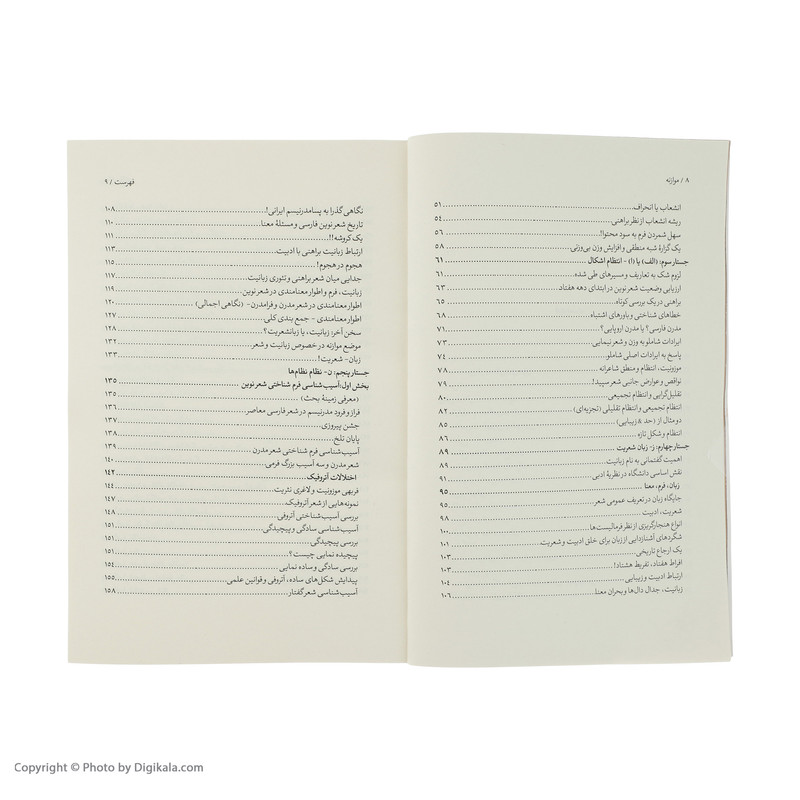 ۸ / موازنه
انشعاب یا انحراف ۵۱
ریشه انشعاب از نظر براهنی ۵۴
سهل شمردن فرم به سود محتوا! ۵۶
یک گزارۀ شبه منطقی و افزایش وزن بی‌وزنی ۵۸
جستار سوم: (الف) با (ا) - انتظام اشکال ۶۱
لزوم شک به تعاریف و مسیرهای طی شده ۶۱
ارزیابی وضعیت شعر نوین در ابتدای دهه هفتاد ۶۳
براهنی در یک بررسی کوتاه ۶۵
خطاهای شناختی و باورهای اشتباه ۶۸
مدرن فارسی؟ یا مدرن اروپایی؟ ۷۱
ایرادات شاملو به وزن و شعر نیمایی ۷۳
پاسخ به ایرادات اصلی شاملو ۷۴
موزونیت، انتظام و منطق شاعرانه ۷۸
نواقص و عوارض جانبی شعر سپید! ۷۹
تقلیل‌گرایی و انتظام تجمیعی ۸۰
انتظام تجمیعی و انتظام تقلیلی (تجزیه‌ای) ۸۲
دو مثال از (حد & زیبایی) ۸۵
انتظام و شکل تازه ۸۶
جستار چهارم: ز- زبان شعریت ۸۹
اهمیت گفتمانی به نام زبانیت ۸۹
نقش اساسی دانشگاه در نظریۀ ادبی ۹۱
زبان، فرم، معنا ۹۵
جایگاه زبان در تعریف عمومی شعر ۹۵
شعریت، ادبیت ۹۸
انواع هنجارگریزی از نظر فرمالیست‌ها ۱۰۰
شگردهای آشنازدایی از زبان برای خلق ادبیت و شعریت ۱۰۱
یک ارجاع تاریخی ۱۰۳
افراط هفتاد، تفریط هشتاد! ۱۰۳
ارتباط ادبیت و زیبایی ۱۰۴
زبانیت، جدال دال‌ها و بحران معنا ۱۰۶
فهرست / ۹
نگاهی گذرا به پسامدرنیسم ایرانی! ۱۰۸
تاریخ شعر نوین فارسی و مسئلۀ معنا ۱۱۰
یک کروشه!! ۱۱۱
ارتباط زبانیت براهنی با ادبیت ۱۱۳
هجوم در هجوم! ۱۱۵
جدایی میان شعر براهنی و تئوری زبانیت ۱۱۷
زبانیت، فرم و اطوار معنامندی در شعر نوین ۱۱۹
اطوار معنامندی در شعر مدرن و فرامدرن- (نگاهی اجمالی) ۱۲۰
اطوار معنامندی - جمع بندی کلی ۱۲۷
سخن آخر: زبانیت، یا زبانشعریت؟ ۱۲۸
موضع موازنه در خصوص زبانیت و شعر ۱۳۲
زبان- شعریت! ۱۳۳
جستار پنجم: ن- نظام نظام‌ها
بخش اول: آسیب‌شناسی فرم شناختی شعر نوین ۱۳۵
(معرفی زمینۀ بحث) ۱۳۵
فراز و فرود مدرنیسم در شعر فارسی معاصر ۱۳۶
جشن پیروزی ۱۳۷
پایان تلخ ۱۳۸
آسیب‌شناسی فرم شناختی شعر مدرن ۱۳۹
شعر مدرن و سه آسیب بزرگ فرمی ۱۴۰
اختلالات آتروفیک ۱۴۲
فربهی موزونیت و لاغری نثریت ۱۴۴
نمونه‌هایی از شعر آتروفیک ۱۴۷
بررسی آسیب‌شناختی آتروفی ۱۴۸
آسیب‌شناسی سادگی و پیچیدگی ۱۵۱
بررسی پیچیدگی ۱۵۱
پیچیده نمایی چیست؟ ۱۵۱
بررسی سادگی و ساده نمایی ۱۵۴
پیدایش شکل‌های ساده، آتروفی و قوانین علمی ۱۵۵
آسیب‌شناسی شعر گفتار ۱۵۸
Copyright © Photo by Digikala.com